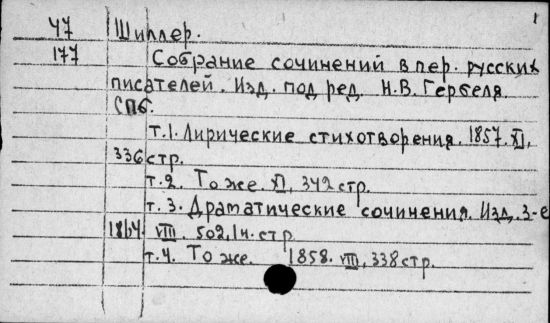 1
47 Шиллер.
177 Собрание сочинений в пер. русских
писателей. Изд. под ред. Н.В. Гербеля.
СПб.
т.1. Лирические стихотворения. 1857. XI,
336 стр.
т.2. То же. XI, 342 стр.
т.3. Драматические сочинения. Изд. 3-е
1864. VIII. 502, 1 н. стр.
т.4. То же. 1858. VIII, 338 стр.